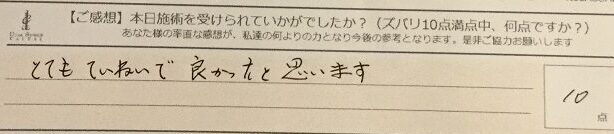 【ご感想】本日施術を受けられていかがでしたか？（ズバリ10点満点中、何点ですか？）
あなた様の率直な感想が、私達の何よりの力となり今後の参考となります。是非ご協力お願いします
とてもていねいで良かったと思います
10
点